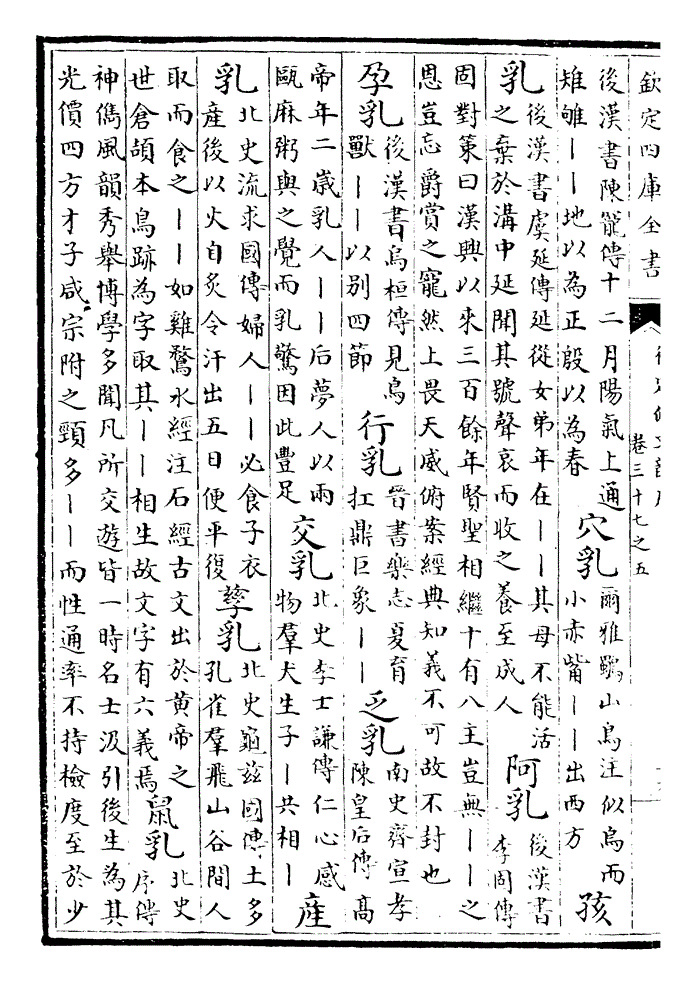 欽定四庫全書
卷三十七之五
後漢書陳寵傳十二月陽氣上通
雉雊丨丨地以為正殷以為春
穴乳
爾雅鸀山烏注似烏而
小赤觜丨丨出西方
孩
乳
後漢書虞延傳延從女弟年在丨丨其母不能活
之棄於溝中延聞其號聲哀而收之養至成人
阿乳
後漢書
李固傳
固對策曰漢興以來三百餘年賢聖相繼十有八主豈無丨丨之
恩豈忘爵賞之寵然上畏天威俯案經典知義不可故不封也
孕乳
後漢書烏桓傳見鳥
獸丨丨以别四節
行乳
晉書樂志夏育
扛鼎巨象丨丨
乏乳
南史齊宣孝
陳皇后傳高
帝年二嵗乳人丨丨后夢人以兩
甌麻粥與之覺而乳驚因此豐足
交乳
北史李士謙傳仁心感
物羣犬生子丨共相丨
產
乳
北史流求國傳婦人丨丨必食子衣
產後以火自炙令汗出五日便平復
孳乳
北史龜兹國傳土多
孔雀羣飛山谷間人
取而食之丨丨如雞鶩水經注石經古文出於黄帝之
世倉頡本鳥跡為字取其丨丨相生故文字有六義焉
鼠乳
北史
序傳
神儁風韻秀舉博學多聞凡所交遊皆一時名士汲引後生為其
光價四方才子咸宗附之頸多丨丨而性通率不持檢度至於少